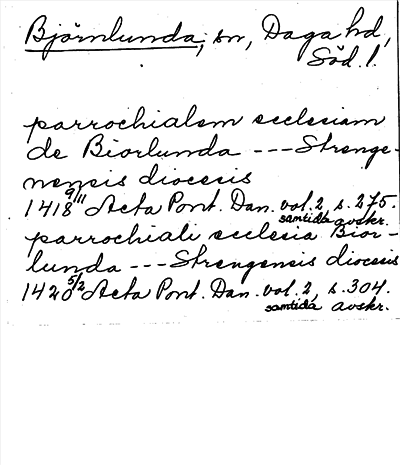 Björnlunda, sn, Daga hd,
Söd. l.
parrochialem ecclesiam
de Biorlunda --- Strenge-
nensis diocesis
1418 9/11 Acta Pont. Dan. vol. 2, s. 275.
samtida avskr.
parrochiali ecclesia Bior-
lunda --- Strengensis diocesis
1420 5/2 Acta Pont. Dan. vol. 2, s. 304.
samtida avskr.